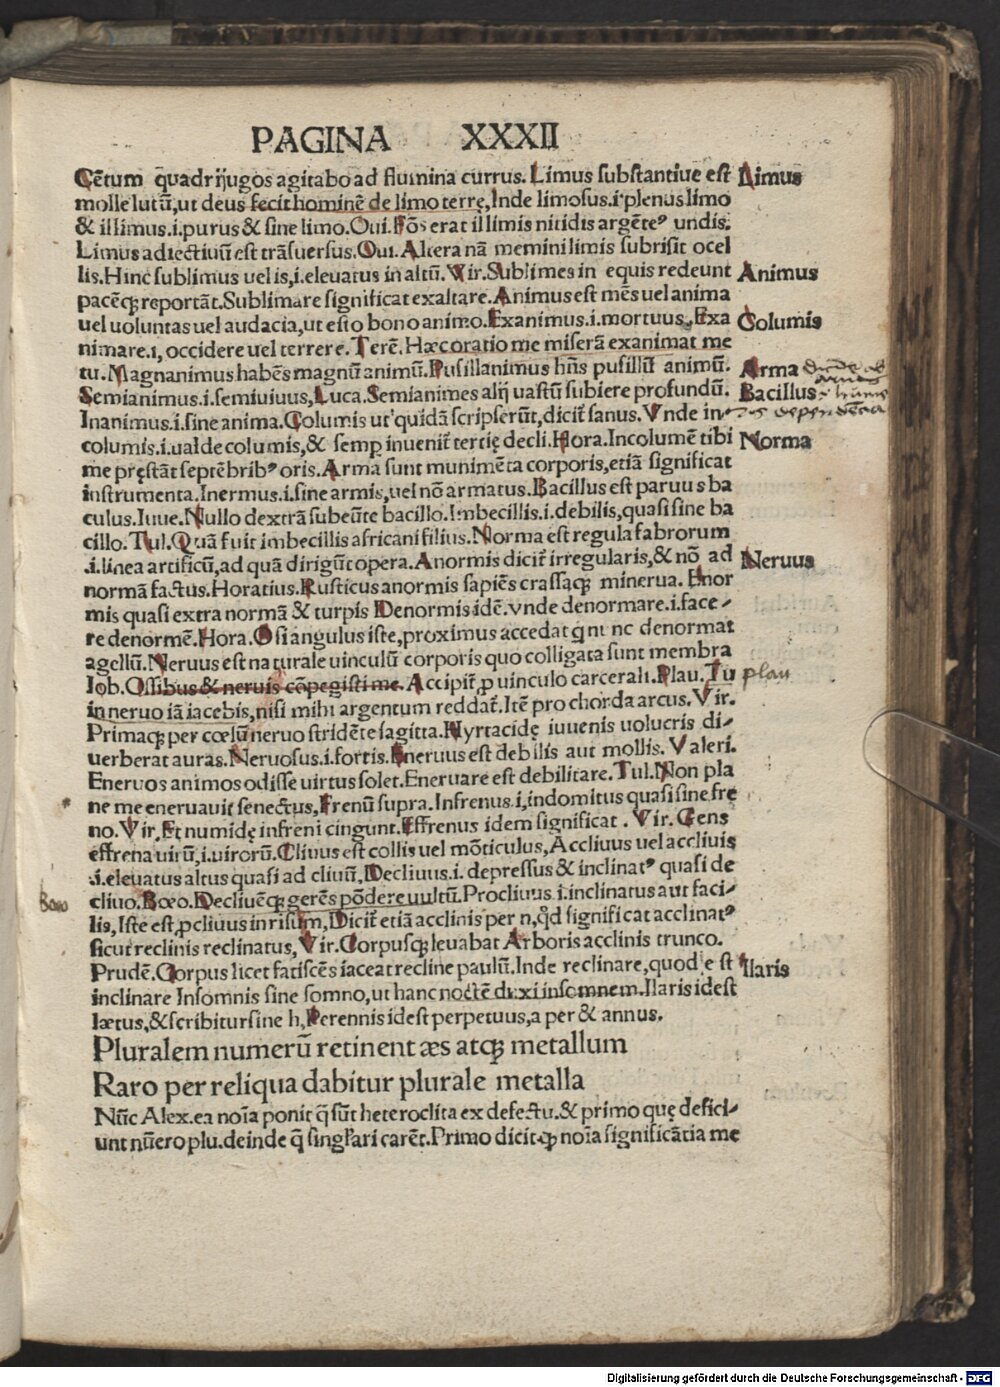 PAGINA XXXII
Cētum q̄uadrijugos agitabo ad flumina currus. Limus substantiue est
molle lutū, ut deus fecit hominē de limo terrę, Inde limosus .i. plenus limo
& illimus .i. purus & sine limo. Oui. Fōs erat illimis nitidis argēteꝰ undis.
Limus adiectiuū est trāsuersus. Oui. Altera nā memini limis subrisit ocel
lis. Hinc sublimus uel is, i. eleuatus in altū. Vir. Sublimes in equis redeunt
pacēqꝫ reportāt. Sublimare significat exaltare. Animus est mēs uel anima
uel uoluntas uel audacia, ut esto bono animo. Exanimus .i. mortuus, Exa
nimare. i, occidere uel terrere. Terē. Hæc oratio me miserā exanimat me
tu. Magnanimus habēs magnū animū. Pusillanimus hn̄s pusillū animū.
Semianimus .i. semiuiuus, Luca. Semianimes alij uastū subiere profundū.
Inanimus .i. sine anima. Columis ut quidā scripserūt, dicit̄ sanus. Vnde in
columis .i. ualde columis, & semꝑ inuenit̄ tertię decli. Hora. Incolumē tibi
me pręstāt septēbribꝰ oris. Arma sunt munimēta corporis, etiā significat
instrumenta. Inermus .i. sine armis, uel nō armatus. Bacillus est paruus ba
culus. Iuue. Nullo dextrā subeūte bacillo. Imbecillis .i. debilis, quasi sine ba
cillo. Tul. Quā fuit imbecillis africani filius. Norma est regula fabrorum
.i. linea artificū, ad quā dirigūt opera. Anormis dicit̄ irregularis, & nō ad
normā factus. Horatius. Rusticus anormis sapiēs crassaqꝫ minerua. Enor
mis quasi extra normā & turpis Denormis idē. vnde denormare .i. face-
re denormē. Hora. O si angulus iste, proximus accedat q̄ nunc denormat
agellū. Neruus est naturale uinculū corporis quo colligata sunt membra
Iob. Ossibus & neruis cōpegisti me. Accipit̄ ꝓ uinculo carcerali. Plau. Tu
in neruo iā iacebis, nisi mihi argentum reddat̄. Itē pro chorda arcus. Vir.
Primaqꝫ per cœlū neruo stridēte sagitta. Hyrtacidę iuuenis uolucris di-
uerberat auras. Neruosus .i. fortis. Eneruus est debilis aut mollis. Valeri.
Eneruos animos odisse uirtus solet. Eneruare est debilitare. Tul. Non pla
ne me eneruauit senectus, Frenū supra. Infrenus .i, indomitus quasi sine fre
no. Vir. Et numidę infreni cingunt. Effrenus idem significat. Vir. Gens
effrena uirū, i. uirorū. Cliuus est collis uel mōticulus, Accliuus uel accliuis
.i. eleuatus altus quasi ad cliuū, Decliuus .i. depressus & inclinatꝰ quasi de
cliuo. Boeo. Decliuēqꝫ gerēs pōdere uultū. Procliuus .i. inclinatus aut faci-
lis, Iste est ꝓcliuus in risum, Dicit̄ etiā acclinis per n, qd̄ significat acclinatꝰ
sicut reclinis reclinatus, Vir. Corpusqꝫ leuabat Arboris acclinis trunco.
Prudē. Corpus licet fatiscēs iaceat recline paulū. Inde reclinare, quod est
inclinare Insomnis sine somno, ut hanc noctē duxi insomnem. Ilaris idest
lætus, & scribitur sine h, Perennis idest perpetuus, a per & annus.
Pluralem numerū retinent æs atqꝫ metallum
Raro per reliqua dabitur plurale metalla
Nūc Alex. ea noīa ponit q̄ sūt heteroclita ex defectu. & primo quę defici-
unt nūero plu. deinde q̄ singl̄ari carēt. Primo dicit ꝙ noīa significātia me
Limus
Animus
Columis
Arma
Bacillus
Norma
Neruus
plau
Boeo
Ilaris
Digitalisierung gefördert durch die Deutsche Forschungsgemeinschaft - DFG